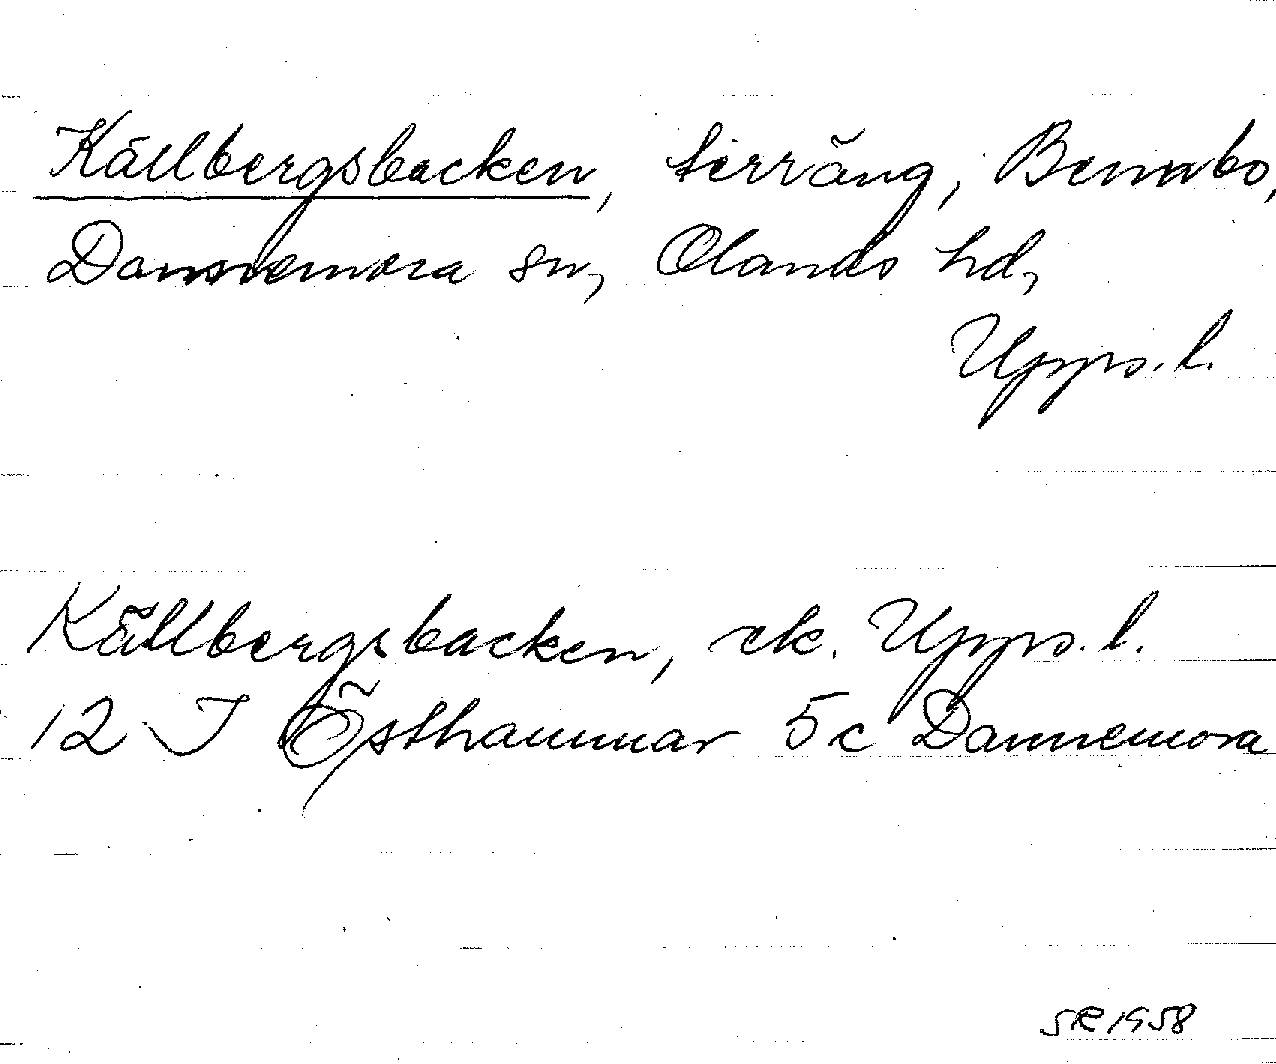 Källbergsbacken, terräng, Bennbo,
Dannemora sn, Olands hd,
Upps. l.
Källbergsbacken, ek. Upps. l.
12 I Östhammar 5c Dannemora
SR 1958